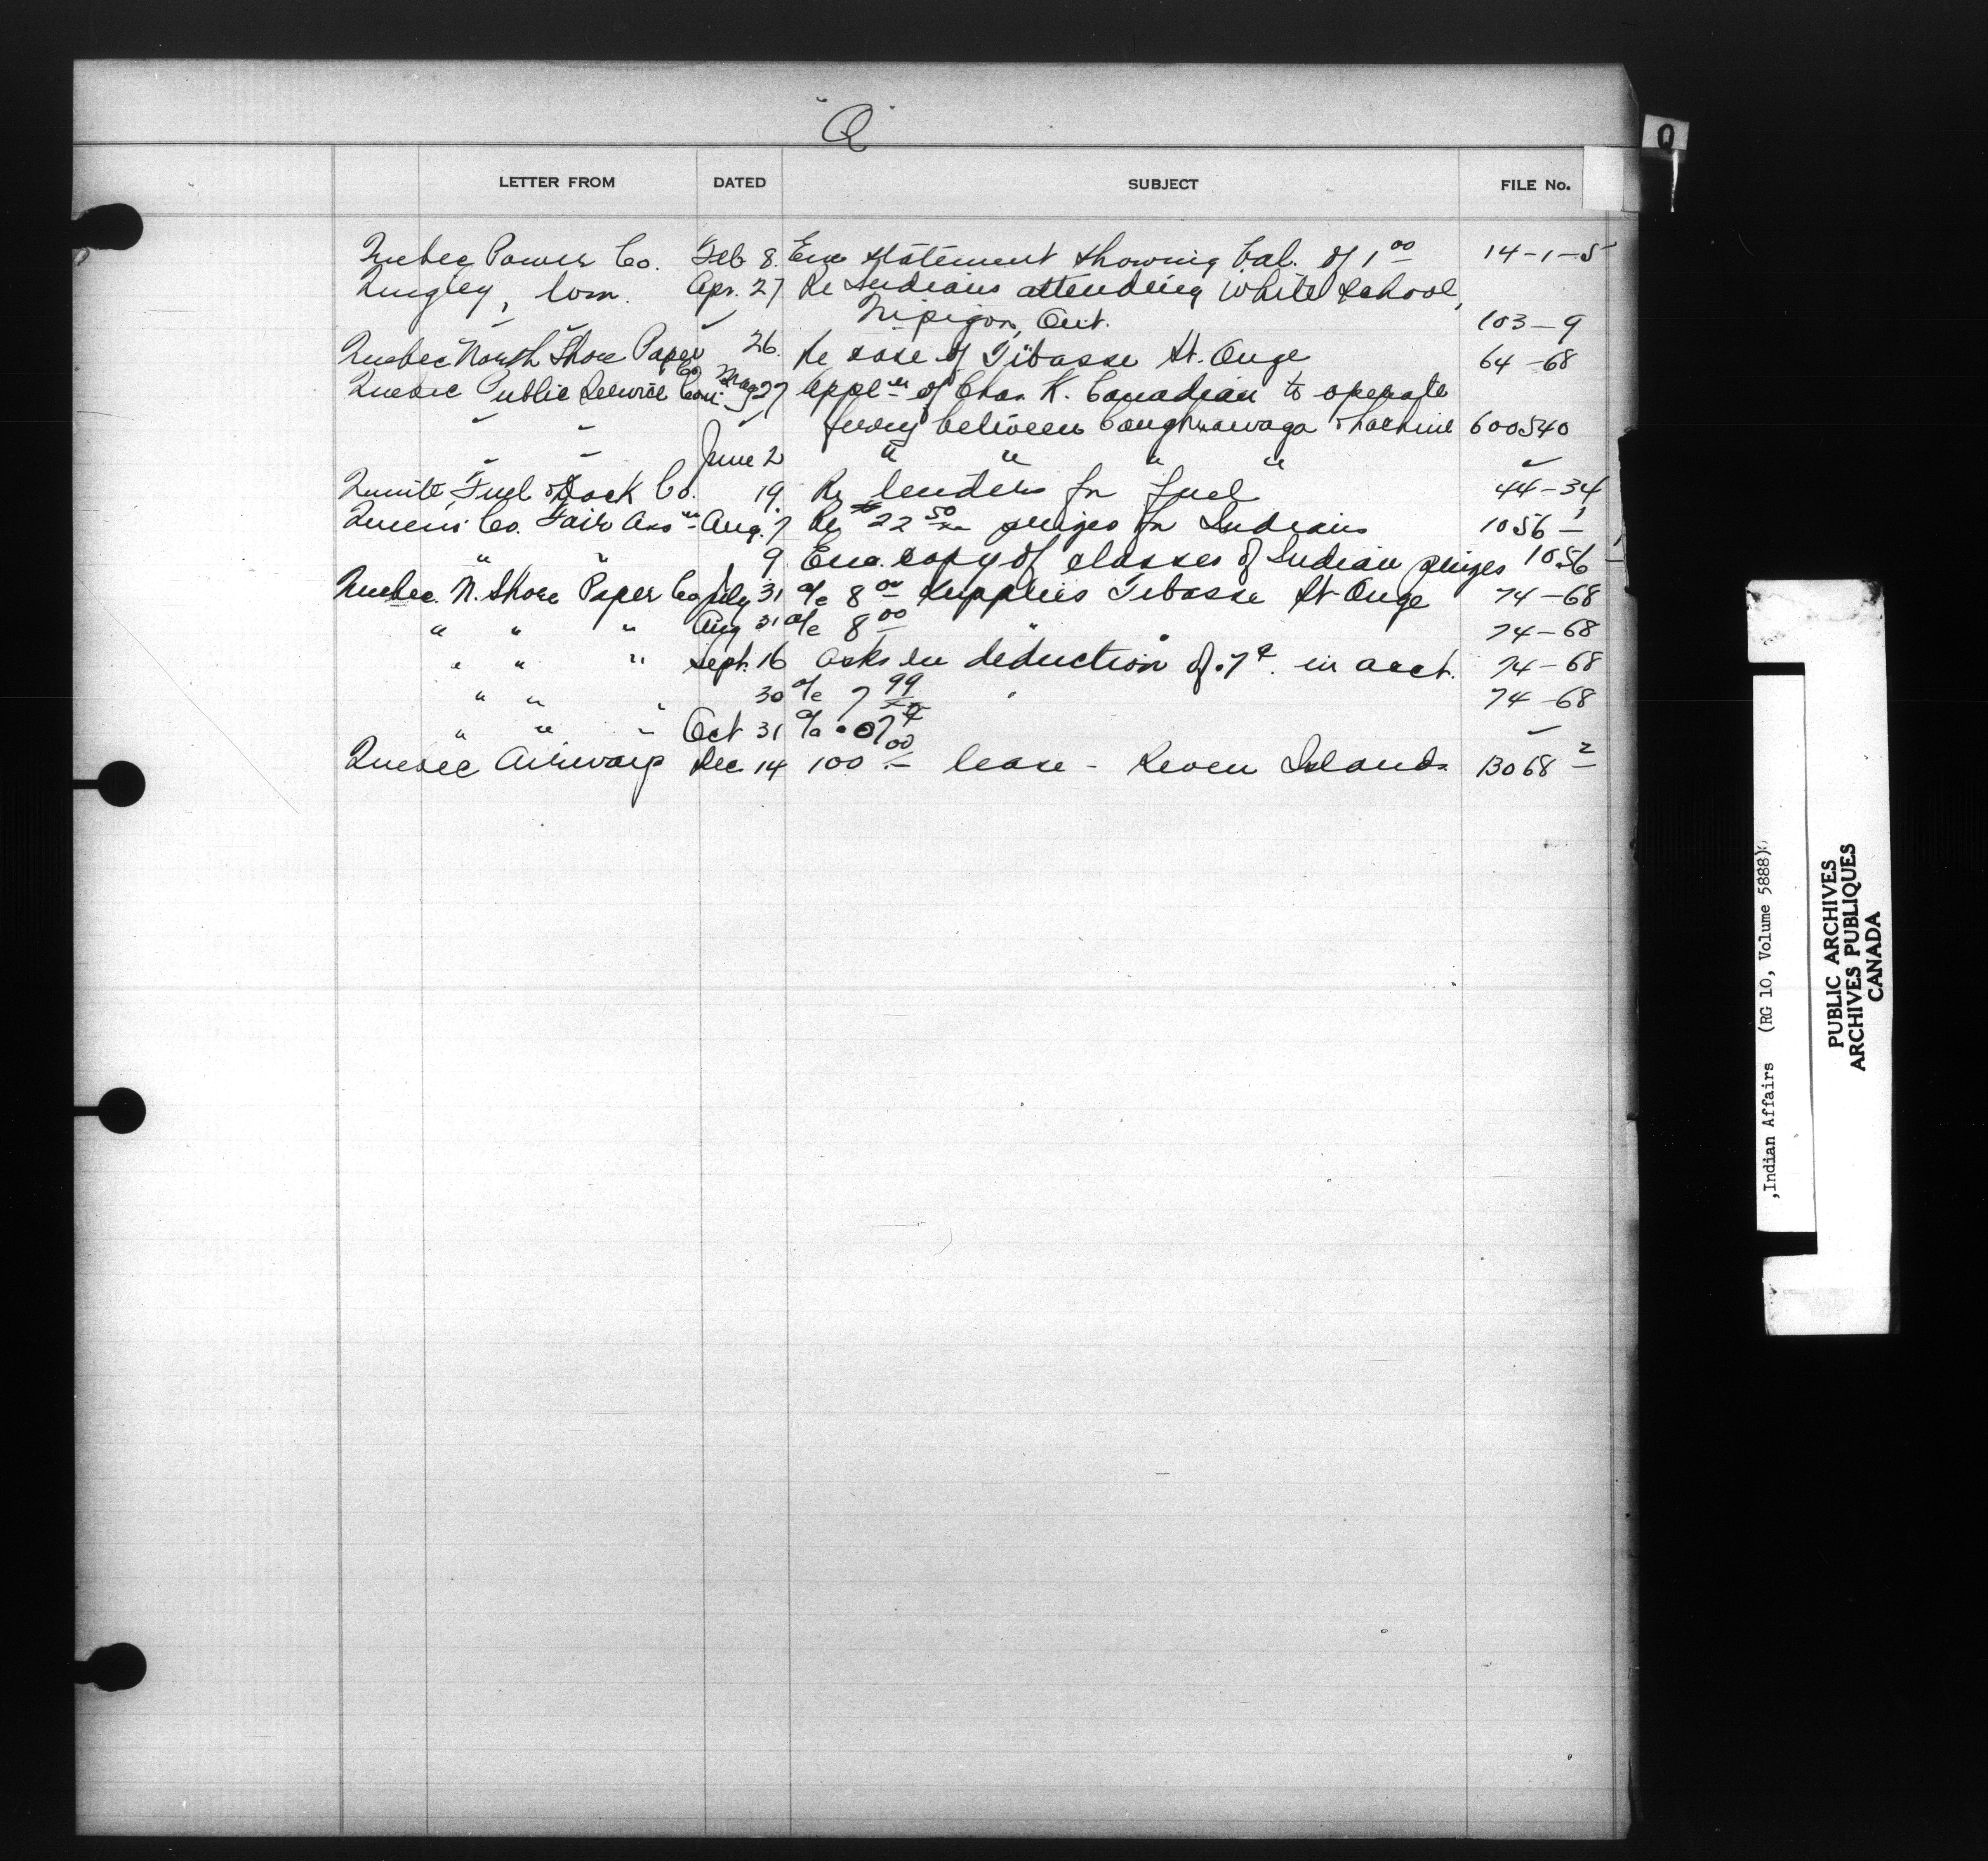 "Q"
Q
LETTER FROM DATED SUBJECT FILE No.
Quebec Power Co. Feb 8. Enc statement showing bal. of 1 00 14-1-5
Quigley, Wm. Apr. 27 Re Indians attending white school,
Nipigon, Ont. 103-9
Quebec North Shore Paper Co 26. Re case of Tibasse St. Onge 64-68
Quebec Public Service Com. May 27 Appl'n of Chas. K. Canadian to operate
" " " ferry between Caughnawaga & Lachine 600540
" " June 2 " " " " "
Fuel & Dock Co. 19. Re tenders for fuel 44-34
Queens Co. Fair Ass'n Aug. 7 Re $22 50 prizes for Indians 1056-1
" " 9 Enc. copy of classes of Indian prizes 1056-1
Quebec. N. Shore Paper Co July 31 a/c 8 00 supplies Tibasse St Onge 74-68
" " " Aug 31 a/c 8 00 " 74-68
" " " Sept. 16 asks re deduction of .7¢ in acct. 74-68
" " " 30 a/c 7 99 " 74-68
" " " Oct 31 a/c .07¢ "
Quebec Airways Dec 14 100 00 lease - Seven Islands 13068-2
,Indian Affairs (RG 10, Volume 5888)
PUBLIC ARCHIVES
ARCHIVES PUBLIQUES
CANADA